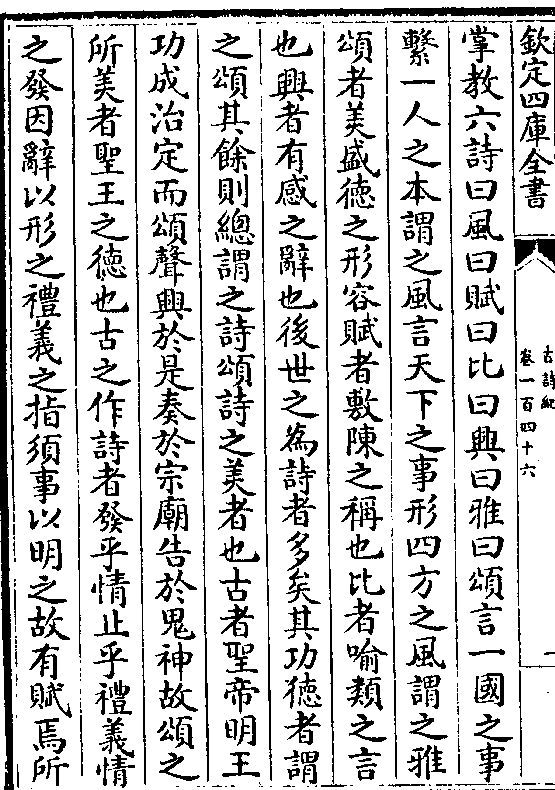 欽定四庫全書
古詩紀
卷一百四十六
一
掌教六詩曰風曰賦曰比曰興曰雅曰頌言一國之事
繫一人之本謂之風言天下之事形四方之風謂之雅
頌者美盛德之形容賦者敷陳之稱也比者喻類之言
也興者有感之辭也後世之為詩者多矣其功德者謂
之頌其餘則總謂之詩頌詩之美者也古者聖帝明王
功成治定而頌聲興於是奏於宗廟告於鬼神故頌之
所美者聖王之德也古之作詩者發乎情止乎禮義情
之發因辭以形之禮義之指須事以明之故有賦焉所